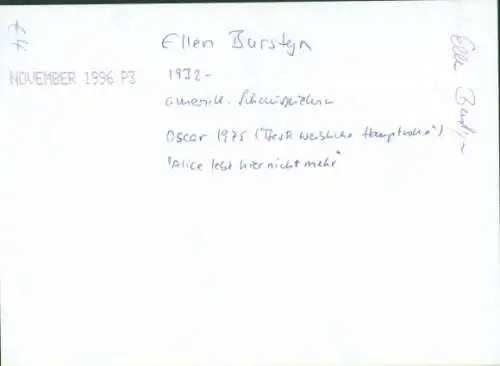 € 4
Ellen Burstyn
NOVEMBER 1996 P3
1932-
amerik. Schauspielerin
Oscar 1975 ("Beste weibliche Hauptrolle")
"Alice lebt hier nicht mehr"
Ellen Burstyn